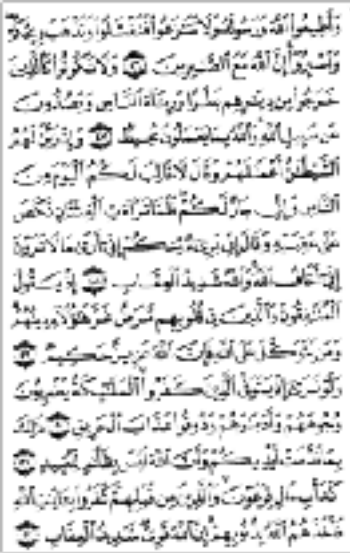 وَأَطِيعُوا۟ ٱللَّهَ وَرَسُولَهُۥ وَلَا تَنَٰزَعُوا۟ فَتَفْشَلُوا۟ وَتَذْهَبَ رِيحُكُمْ
وَٱصْبِرُوٓا۟ إِنَّ ٱللَّهَ مَعَ ٱلصَّٰبِرِينَ ۝ وَلَا تَكُونُوا۟ كَٱلَّذِينَ
خَرَجُوا۟ مِن دِيَٰرِهِم بَطَرًا وَرِئَآءَ ٱلنَّاسِ وَيَصُدُّونَ
عَن سَبِيلِ ٱللَّهِ وَٱللَّهُ بِمَا يَعْمَلُونَ مُحِيطٌ ۝ وَإِذْ زَيَّنَ لَهُمُ
ٱلشَّيْطَٰنُ أَعْمَٰلَهُمْ وَقَالَ لَا غَالِبَ لَكُمُ ٱلْيَوْمَ مِنَ
ٱلنَّاسِ وَإِنِّى جَارٌ لَّكُمْ فَلَمَّا تَرَآءَتِ ٱلْفِئَتَانِ نَكَصَ
عَلَىٰ عَقِبَيْهِ وَقَالَ إِنِّى بَرِىٓءٌ مِّنكُمْ إِنِّىٓ أَرَىٰ مَا لَا تَرَوْنَ
إِنِّىٓ أَخَافُ ٱللَّهَ وَٱللَّهُ شَدِيدُ ٱلْعِقَابِ ۝ إِذْ يَقُولُ
ٱلْمُنَٰفِقُونَ وَٱلَّذِينَ فِى قُلُوبِهِم مَّرَضٌ غَرَّ هَٰٓؤُلَآءِ دِينُهُمْ
وَمَن يَتَوَكَّلْ عَلَى ٱللَّهِ فَإِنَّ ٱللَّهَ عَزِيزٌ حَكِيمٌ ۝
وَلَوْ تَرَىٰٓ إِذْ يَتَوَفَّى ٱلَّذِينَ كَفَرُوا۟ ٱلْمَلَٰٓئِكَةُ يَضْرِبُونَ
وُجُوهَهُمْ وَأَدْبَٰرَهُمْ وَذُوقُوا۟ عَذَابَ ٱلْحَرِيقِ ۝ ذَٰلِكَ
بِمَا قَدَّمَتْ أَيْدِيكُمْ وَأَنَّ ٱللَّهَ لَيْسَ بِظَلَّٰمٍ لِّلْعَبِيدِ ۝
كَدَأْبِ ءَالِ فِرْعَوْنَ وَٱلَّذِينَ مِن قَبْلِهِمْ كَفَرُوا۟ بِـَٔايَٰتِ ٱللَّهِ
فَأَخَذَهُمُ ٱللَّهُ بِذُنُوبِهِمْ إِنَّ ٱللَّهَ قَوِىٌّ شَدِيدُ ٱلْعِقَابِ ۝